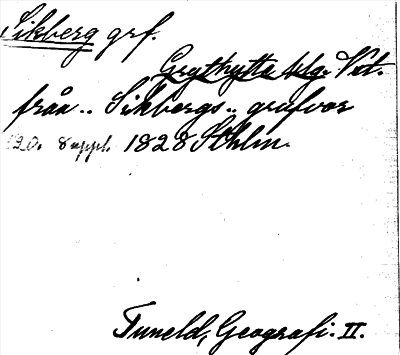 Sikberg grf.
Grythytte blg. Vstm.
från .. Sikbergs .. grufvor
20. 8 uppl. 1828 Sthlm.
Tuneld, Geografi. II.